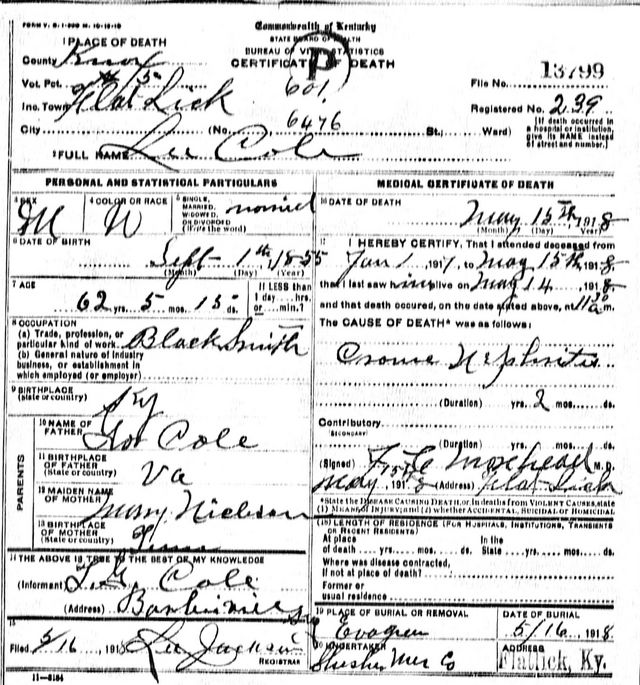 FORM V. S. 1-300 M. 10-10-10
Commonwealth of Kentucky
STATE BOARD OF HEALTH
BUREAU OF VITAL STATISTICS
CERTIFICATE OF DEATH
P
1 PLACE OF DEATH
County Knox
Vot. Pct. # 15
Inc. Town Flat Lick
City (No. St., Ward)
601
6476
File No. 13799
Registered No. 239
[If death occurred in a hospital or institution, give its NAME instead of street and number.]
2 FULL NAME Lee Cole
PERSONAL AND STATISTICAL PARTICULARS
3 SEX M
4 COLOR OR RACE W
5 SINGLE, MARRIED, WIDOWED, OR DIVORCED (Write the word)
6 DATE OF BIRTH Sept 1th, 1855
(Month) (Day) (Year)
7 AGE 62 yrs. 5 mos. 15 ds.
If LESS than 1 day ... hrs. or ... min.?
8 OCCUPATION
(a) Trade, profession, or particular kind of work Black Smith
(b) General nature of industry business, or establishment in which employed (or employer)
9 BIRTHPLACE (State or country) Ky
PARENTS
10 NAME OF FATHER Cole
11 BIRTHPLACE OF FATHER (State or country) Va
12 MAIDEN NAME OF MOTHER Mary
13 BIRTHPLACE OF MOTHER (State or country)
14 THE ABOVE IS TRUE TO THE BEST OF MY KNOWLEDGE
(Informant) Cole
(Address)
15
Filed 5/16, 1918 Lee Jackson
REGISTRAR
11-3184
MEDICAL CERTIFICATE OF DEATH
16 DATE OF DEATH May 15th, 1918
(Month) (Day) (Year)
17 I HEREBY CERTIFY, That I attended deceased from
Jan 1, 1917, to May 15th, 1918
that I last saw him alive on May 14, 1918
and that death occured, on the date stated above, at 11 30 a m.
The CAUSE OF DEATH* was as follows:
Nephritis
(Duration) yrs. 2 mos. ds.
Contributory
(SECONDARY)
(Duration) yrs. mos. ds.
(Signed) Morehead M. D.
May 15, 1918 (Address) Flat Lick
*State the DISEASE CAUSING DEATH, or, in deaths from VIOLENT CAUSES, state
(1) MEANS OF INJURY; and (2) whether ACCIDENTAL, SUICIDAL or HOMICIDAL
(18) LENGTH OF RESIDENCE (FOR HOSPITALS, INSTITUTIONS, TRANSIENTS OR RECENT RESIDENTS)
At place of death yrs. mos. ds. In the State yrs. mos. ds.
Where was disease contracted, if not at place of death?
Former or usual residence
19 PLACE OF BURIAL OR REMOVAL
DATE OF BURIAL
5/16, 1918
20 UNDERTAKER
Mer Co
ADDRESS
Flatlick, Ky.